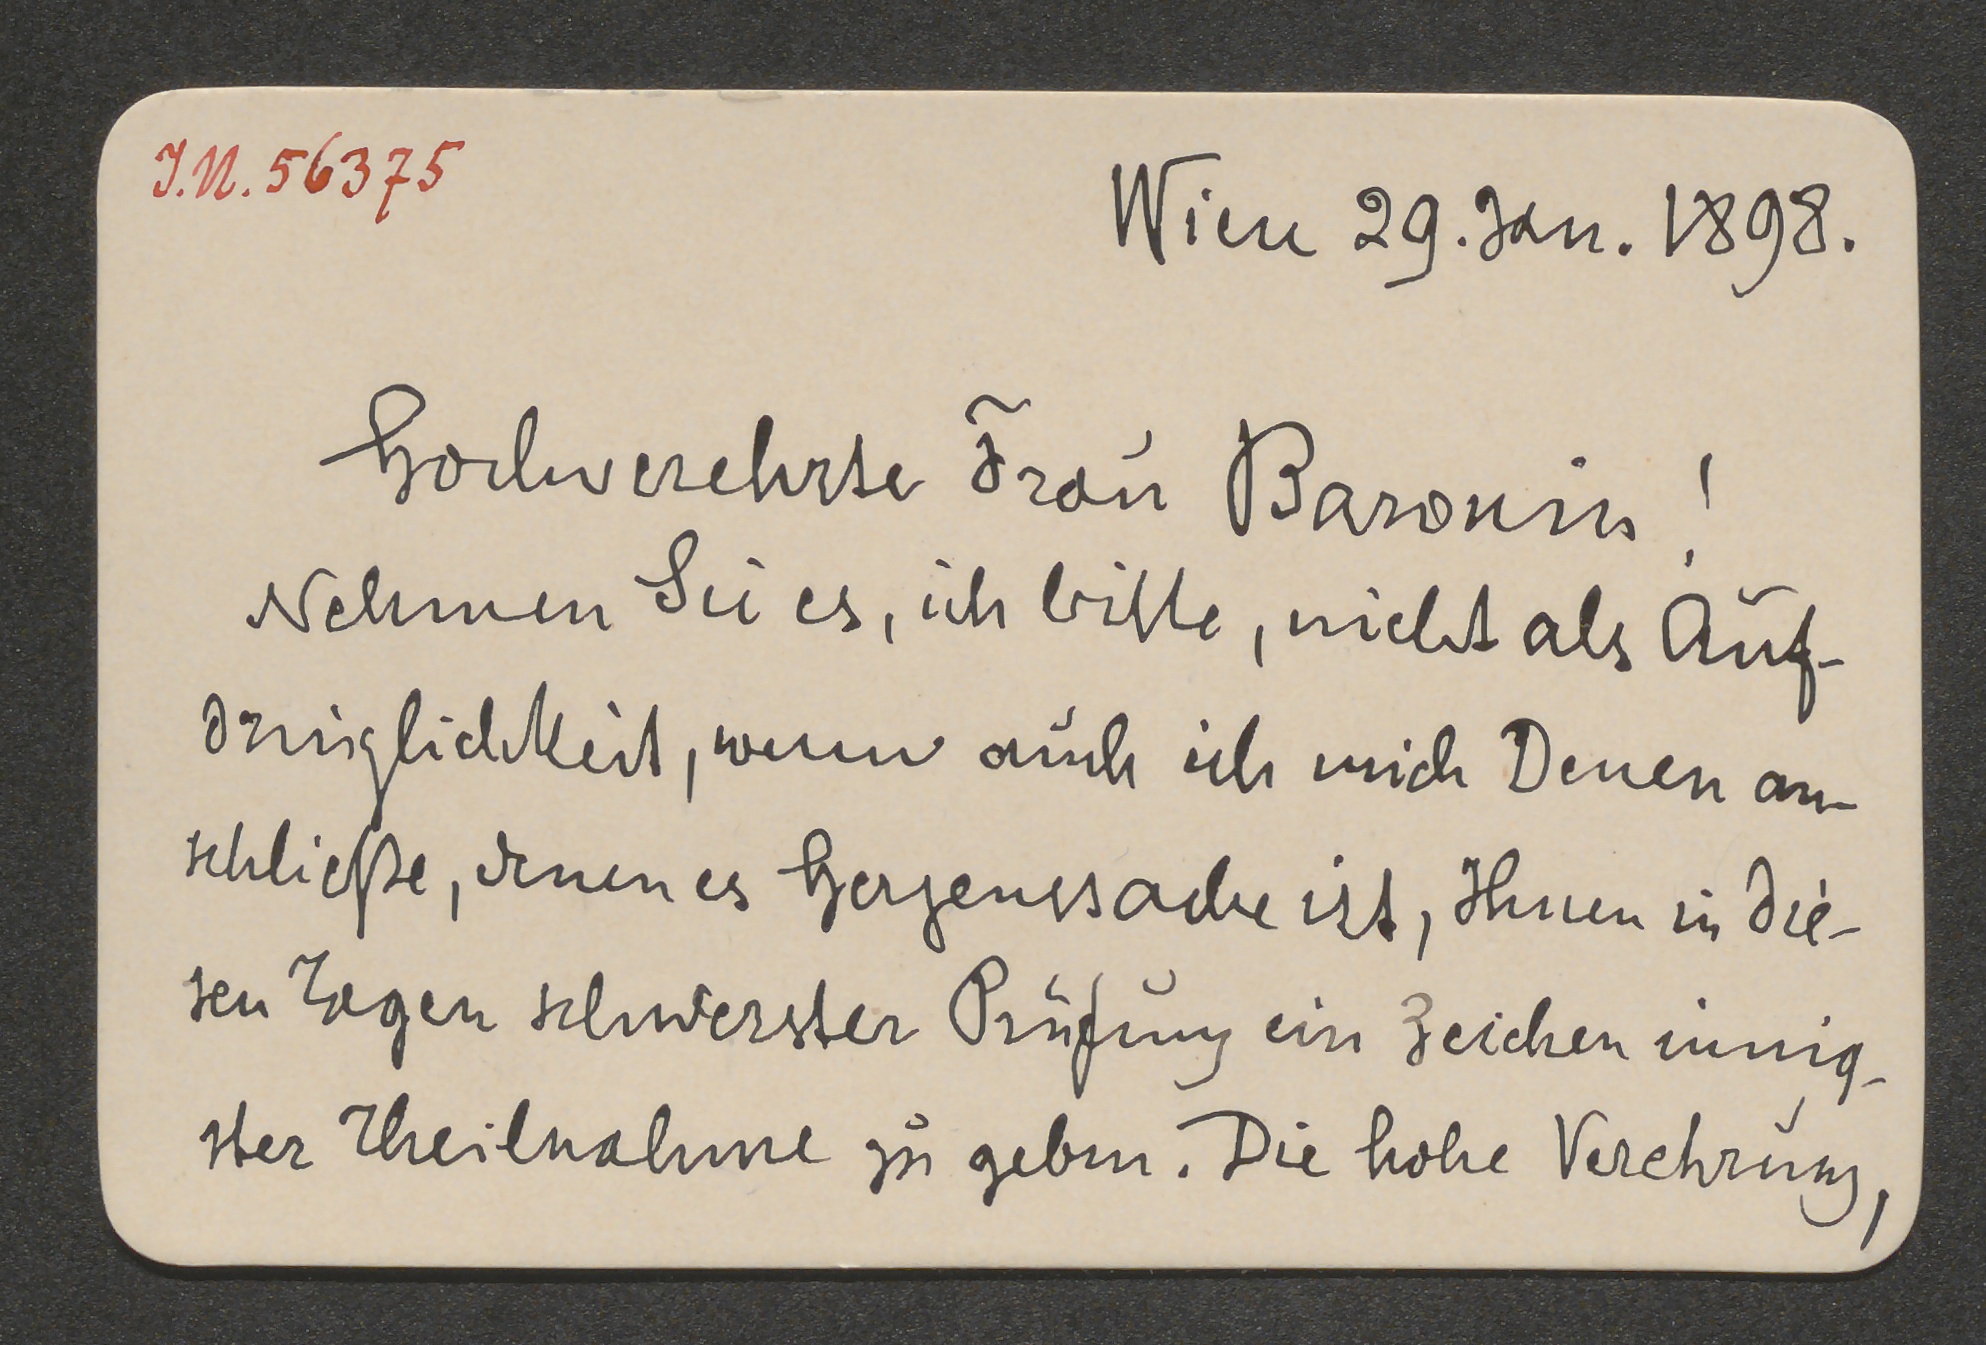 J.N. 56375
Wien 29. Jan. 1898.
Hochverehrte Frau Baronin!
Nehmen Sie es, ich bitte, nicht als Auf-
dringlichkeit, wenn auch ich mich Denen an-
schließe, denen es Herzenssache ist, Ihnen in die-
sen Tagen schwerster Prüfung ein Zeichen innig-
ster Theilnahme zu geben. Die hohe Verehrung,